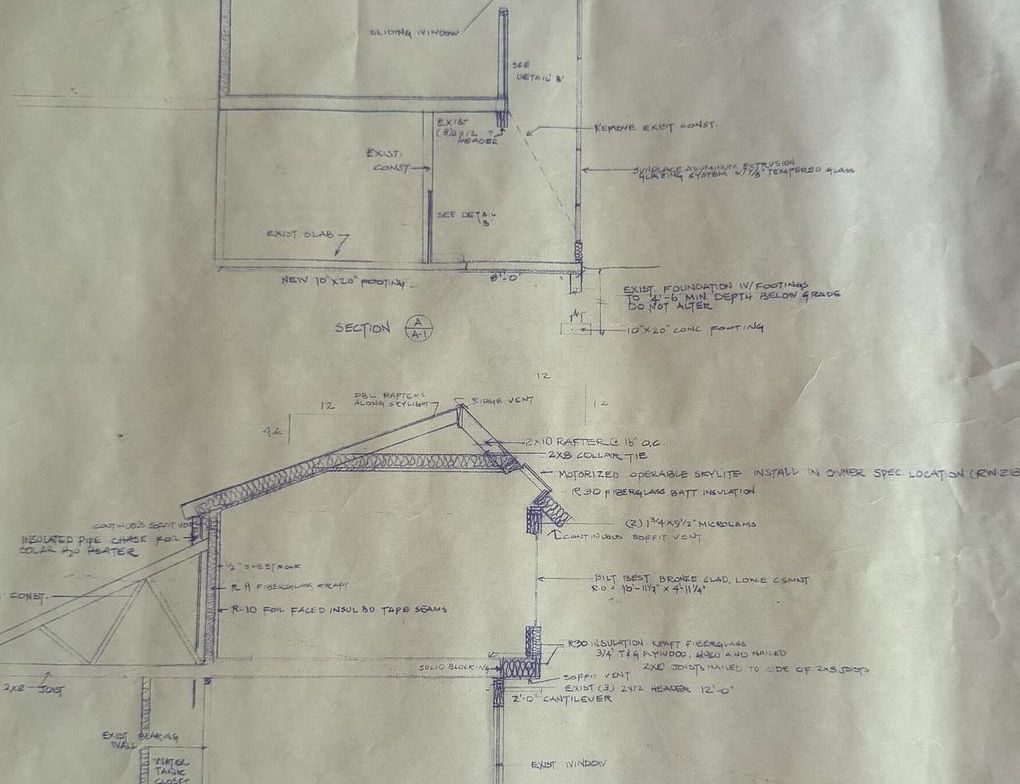 SLIDING WINDOW
SEE
DETAIL 'B'
EXIST
(3) 2X12
HEADER
REMOVE EXIST CONST.
EXIST.
CONST
SUNPLACE ALUMINUM EXTRUSION
GLAZING SYSTEM W/ 7/8" TEMPERED GLASS
SEE DETAIL
'B'
EXIST SLAB
NEW 10"X20" FOOTING
8'-0"
EXIST FOUNDATION W/FOOTINGS
TO 4'-6" MIN DEPTH BELOW GRADE
DO NOT ALTER
10"X20" CONC FOOTING
SECTION A
A-1
12
DBL RAFTERS
ALONG SKYLIGHT
RIDGE VENT
12
12
2X10 RAFTER @ 16" O.C.
2X8 COLLAR TIE
MOTORIZED OPERABLE SKYLITE INSTALL IN OWNER SPEC LOCATION
R 30 FIBERGLASS BATT INSULATION
(2) 1 3/4 X 9 1/2" MICROLAMS
CONTINUOUS SOFFIT VENT
CONTINUOUS SOFFIT
INSULATED PIPE CHASE FOR
SOLAR H2O HEATER
1/2" SHEETROCK
R 11 FIBERGLASS KRAFT
R-10 FOIL FACED INSUL BD TAPE SEAMS
BILT BEST BRONZE CLAD, LOW E CSMNT
R.O. = 10'-11 1/2" X 4'-11 1/4"
CONST.
R30 INSULATION KRAFT FIBERGLASS
3/4" T&G PLYWOOD, GLUED AND NAILED
2X8 JOISTS NAILED TO SIDE OF 2X8 JOISTS
SOLID BLOCKING
SOFFIT VENT
EXIST (3) 2X12 HEADER 12'-0"
2'-0" CANTILEVER
2X8 JOIST
EXIST BEARING
WALL
WATER
TANK
CLOSET
EXIST WINDOW